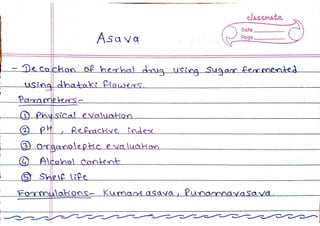 classmate
Date
Page
Asava
- Decoction of herbal drug using sugar fermented
using dhataki flowers.
Parameters-
① Physical evaluation
② pH, Refractive index
③ organoleptic evaluation
④ Alcohol content
⑤ Shelf life
Formulations- Kumari asava, Punarnavasava.